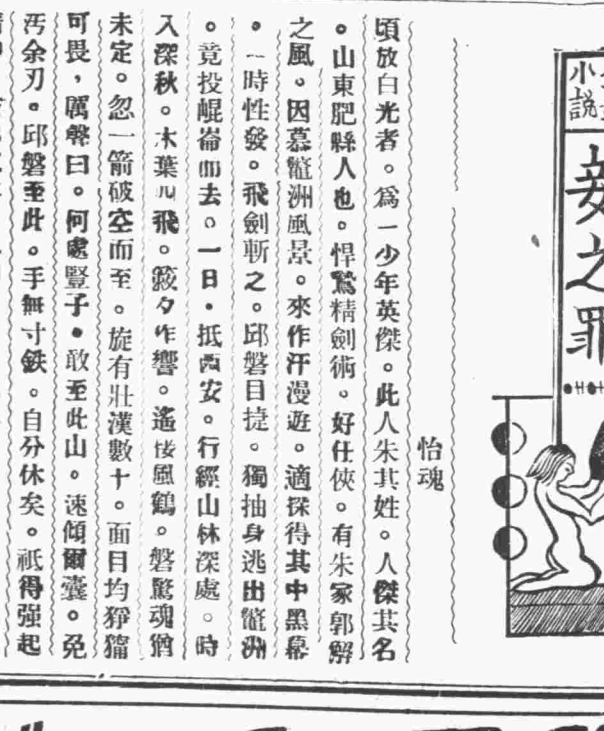 小說
妾之罪
怡魂
頃放白光者。爲一少年英傑。此人朱其姓。人傑其名
。山東肥縣人也。悍鷙精劍術。好任俠。有朱家郭解
之風。因慕瀛洲風景。來作汗漫遊。適探得其中黑幕
。一時性發。飛劍斬之。邱磐目捷。獨抽身逃出瀛洲
。竟投崐崙而去。一日。抵西安。行經山林深處。時
入深秋。木葉爪飛。簌夕作響。遙 風鶴。磐驚魂猶
未定。忽一箭破空而至。旋有壯漢數十。面目均猙獰
可畏，厲聲曰。何處豎子。敢至此山。速傾爾囊。免
汚余刃。邱磐至此。手無寸鉄。自分休矣。祇得强起